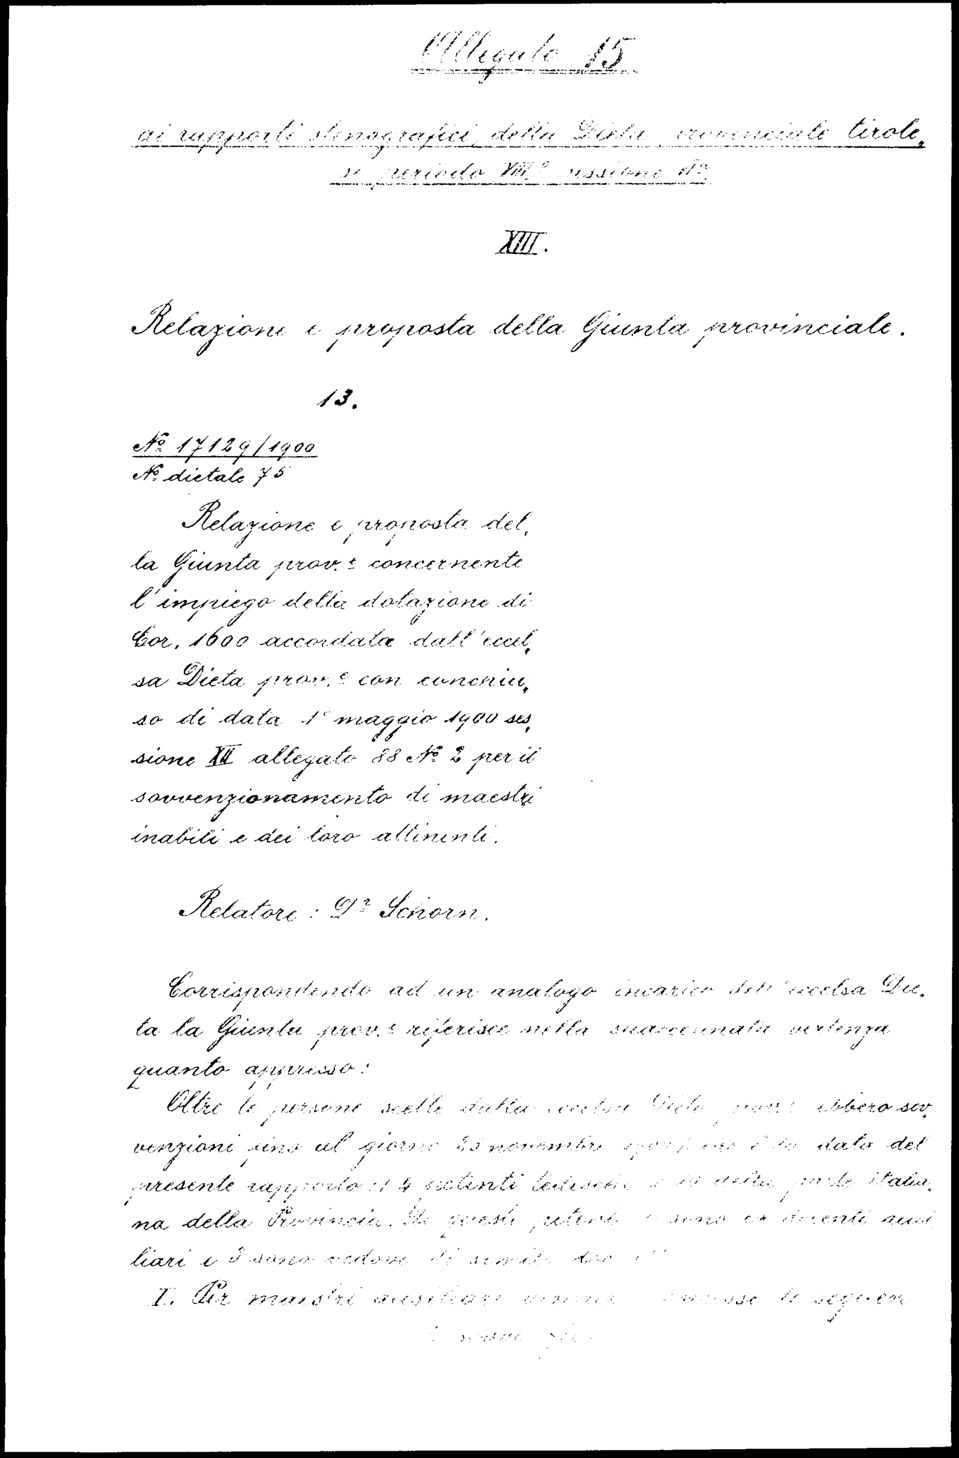 Allegato 15
ai rapporti stenografici della Dieta provinciale tirole,
se periodo VIII.° sessione
XIII.
Relazione e proposta della Giunta provinciale.
13.
N° 17129/1900
N° dietale 75
Relazione e proposta del,
la Giunta prov.e concernente
l'impiego della dotazione di
Cor. 1600 accordata dall'eccel,
sa Dieta prov.e con conchiu,
so di data 1° maggio 1900 ses,
sione XII allegato 88 N° 2 per il
sovvenzionamento di maestri
inabili e dei loro attinenti.
Relatore: Dr Schorn.
Corrispondendo ad un analogo incarico dell'eccelsa Die,
ta la Giunta prov.e riferisce nella suaccennata vertenza
quanto appresso:
Oltre le persone scelte dalla eccelsa Dieta ebbero sov,
venzioni fino al giorno novembre data del
presente rapporto 14 petenti tedeschi della parte italia,
na della Provincia. Di questi petenti sono docenti ausi
liari e 3 sono vedove di
I. Per maestri ausiliari le seguen